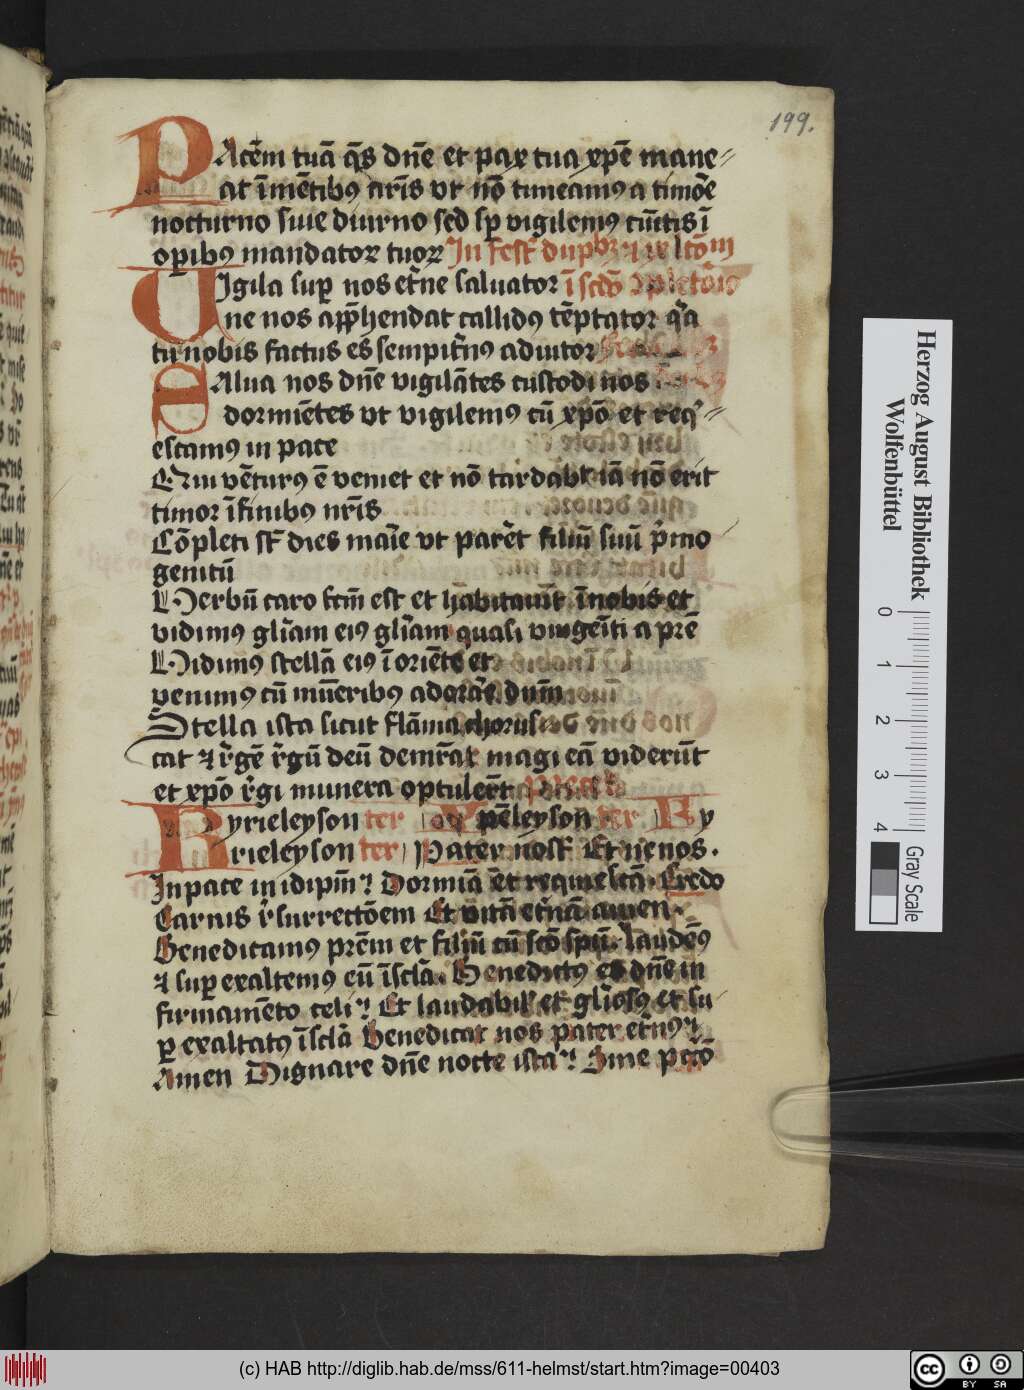 199.
Pacē̄m tuā q̄s dn̄e et pax tua xp̄e mane⸗
at ī mētibꝯ nr̄is vt nō timeamꝯ a timōe
nocturno siue diurno sed sꝑ vigilemꝯ cūctis ī
oꝑibꝯ mandatoꝝ tuoꝝ In fest
Uigila suꝑ nos et̄ne saluator
ne nos app̄hendat callidꝯ tēptator q̄a
tu nobis factus es sempit̄nꝯ adiutor
Salua nos dn̄e vigilātes custodi nos
dormiētes vt vigilemꝯ cū xp̄o et req̄⸗
escamꝯ in pace
Qui vēturꝯ ē veniet et nō tardabit iā nō erit
timor ī finibꝯ nr̄is
Cōpleti st̄ dies marie vt paret̄ filiū suū p̄mo
genitū
Verbū caro fc̄m est et habitauit ī nobis et
vidimꝯ gl̄iam eiꝯ gl̄iam quasi vnigeīti a pr̄e
Vidimꝯ stellā eiꝯ ī oriēte et
venimꝯ cū mūeribꝯ adorāe dn̄m
Stella ista sicut flāma choruscat
cat ⁊ r̄gē r̄gū deū demr̄at magi eā viderūt
et xp̄o r̄gi munera optulert̄
Kyrieleyson ter xp̄eleyson ter Ky
rieleyson ter Pater nost̄ Et ne nos .
In pace in idip̄m Dormiā et requiescā . Credo
Carnis r̄surrectōem Et vitā et̄nā amen .
Benedicamꝯ pr̄em et filiū cū scō spū . laudēꝯ
⁊ suꝑexaltemꝯ eū ī scl̄a . Benedictꝯ es dn̄e in
firmamēto celi Et laudabil̄ et gl̄iosꝯ et su
ꝑexaltatꝯ ī scl̄a Benedicat nos pater et̄nꝯ
Amen Dignare dn̄e nocte ista Sine pctō
Herzog August Bibliothek
Wolfenbüttel
0 1 2 3 4
Gray Scale
(c) HAB http://diglib.hab.de/mss/611-helmst/start.htm?image=00403
cc BY SA